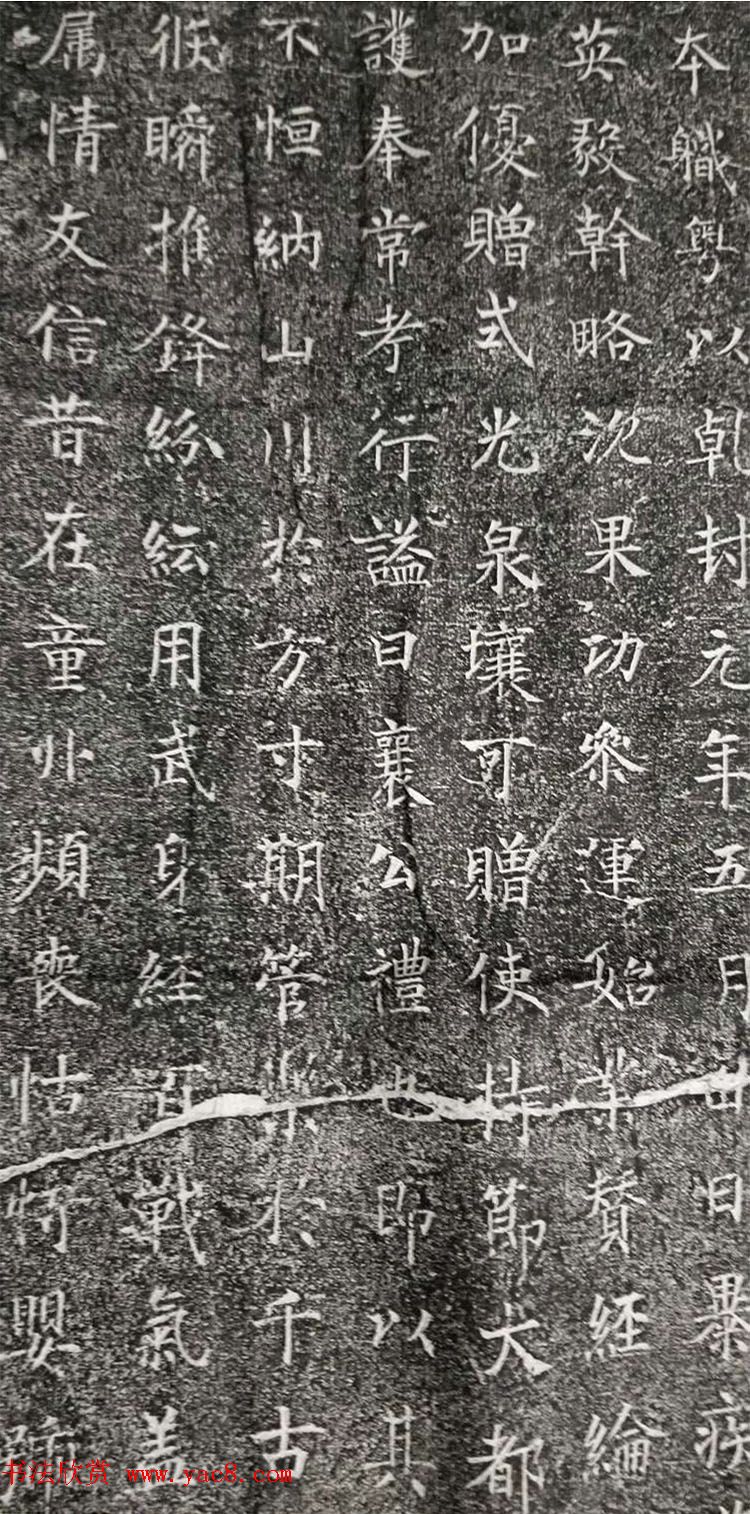 本職粵以乹封元年五月廿日暴疾
英毅幹略沉果功參運始業賛經綸
加優贈式光泉壤可贈使持節大都
護奉常考行謚曰襄公禮也即以其
不恒納山川於方寸期管樂於千古
候瞬推鋒紛紜用武身經百戰氣盖
属情友信昔在童丱頻喪怙恃嬰
书法欣赏 www.yac8.com